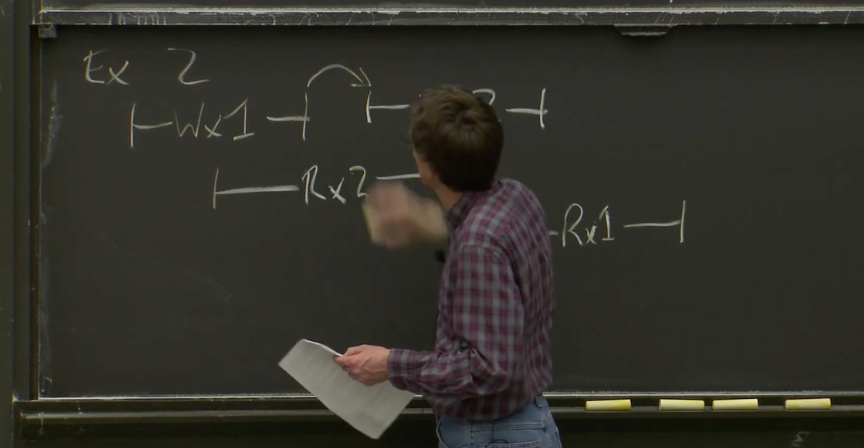 Ex 2
Wx1 2
Rx2
Rx1